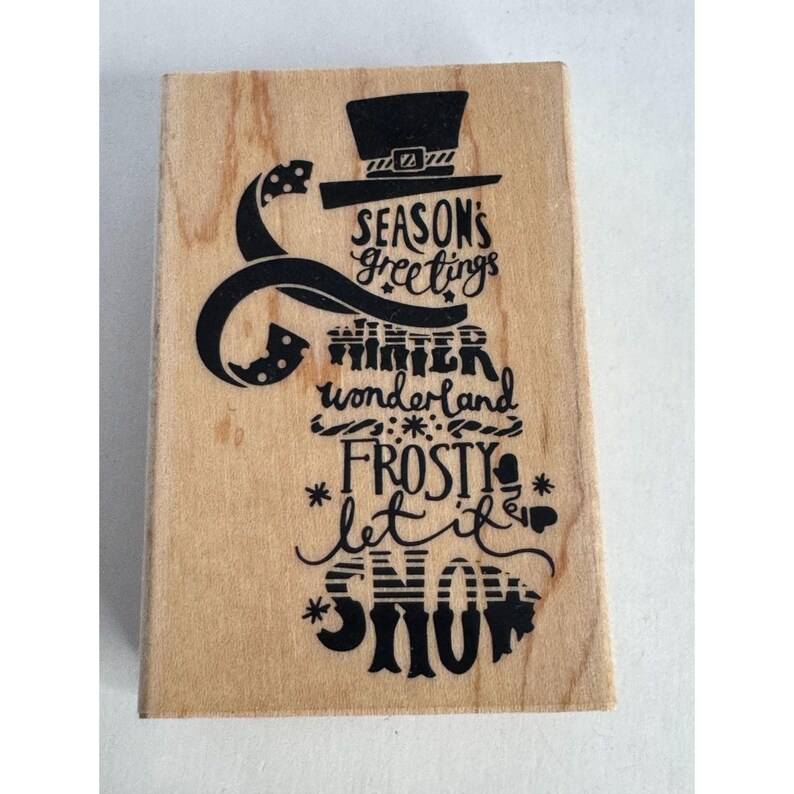 SEASON'S
greetings
WINTER
wonderland
FROSTY
let it
SNOW